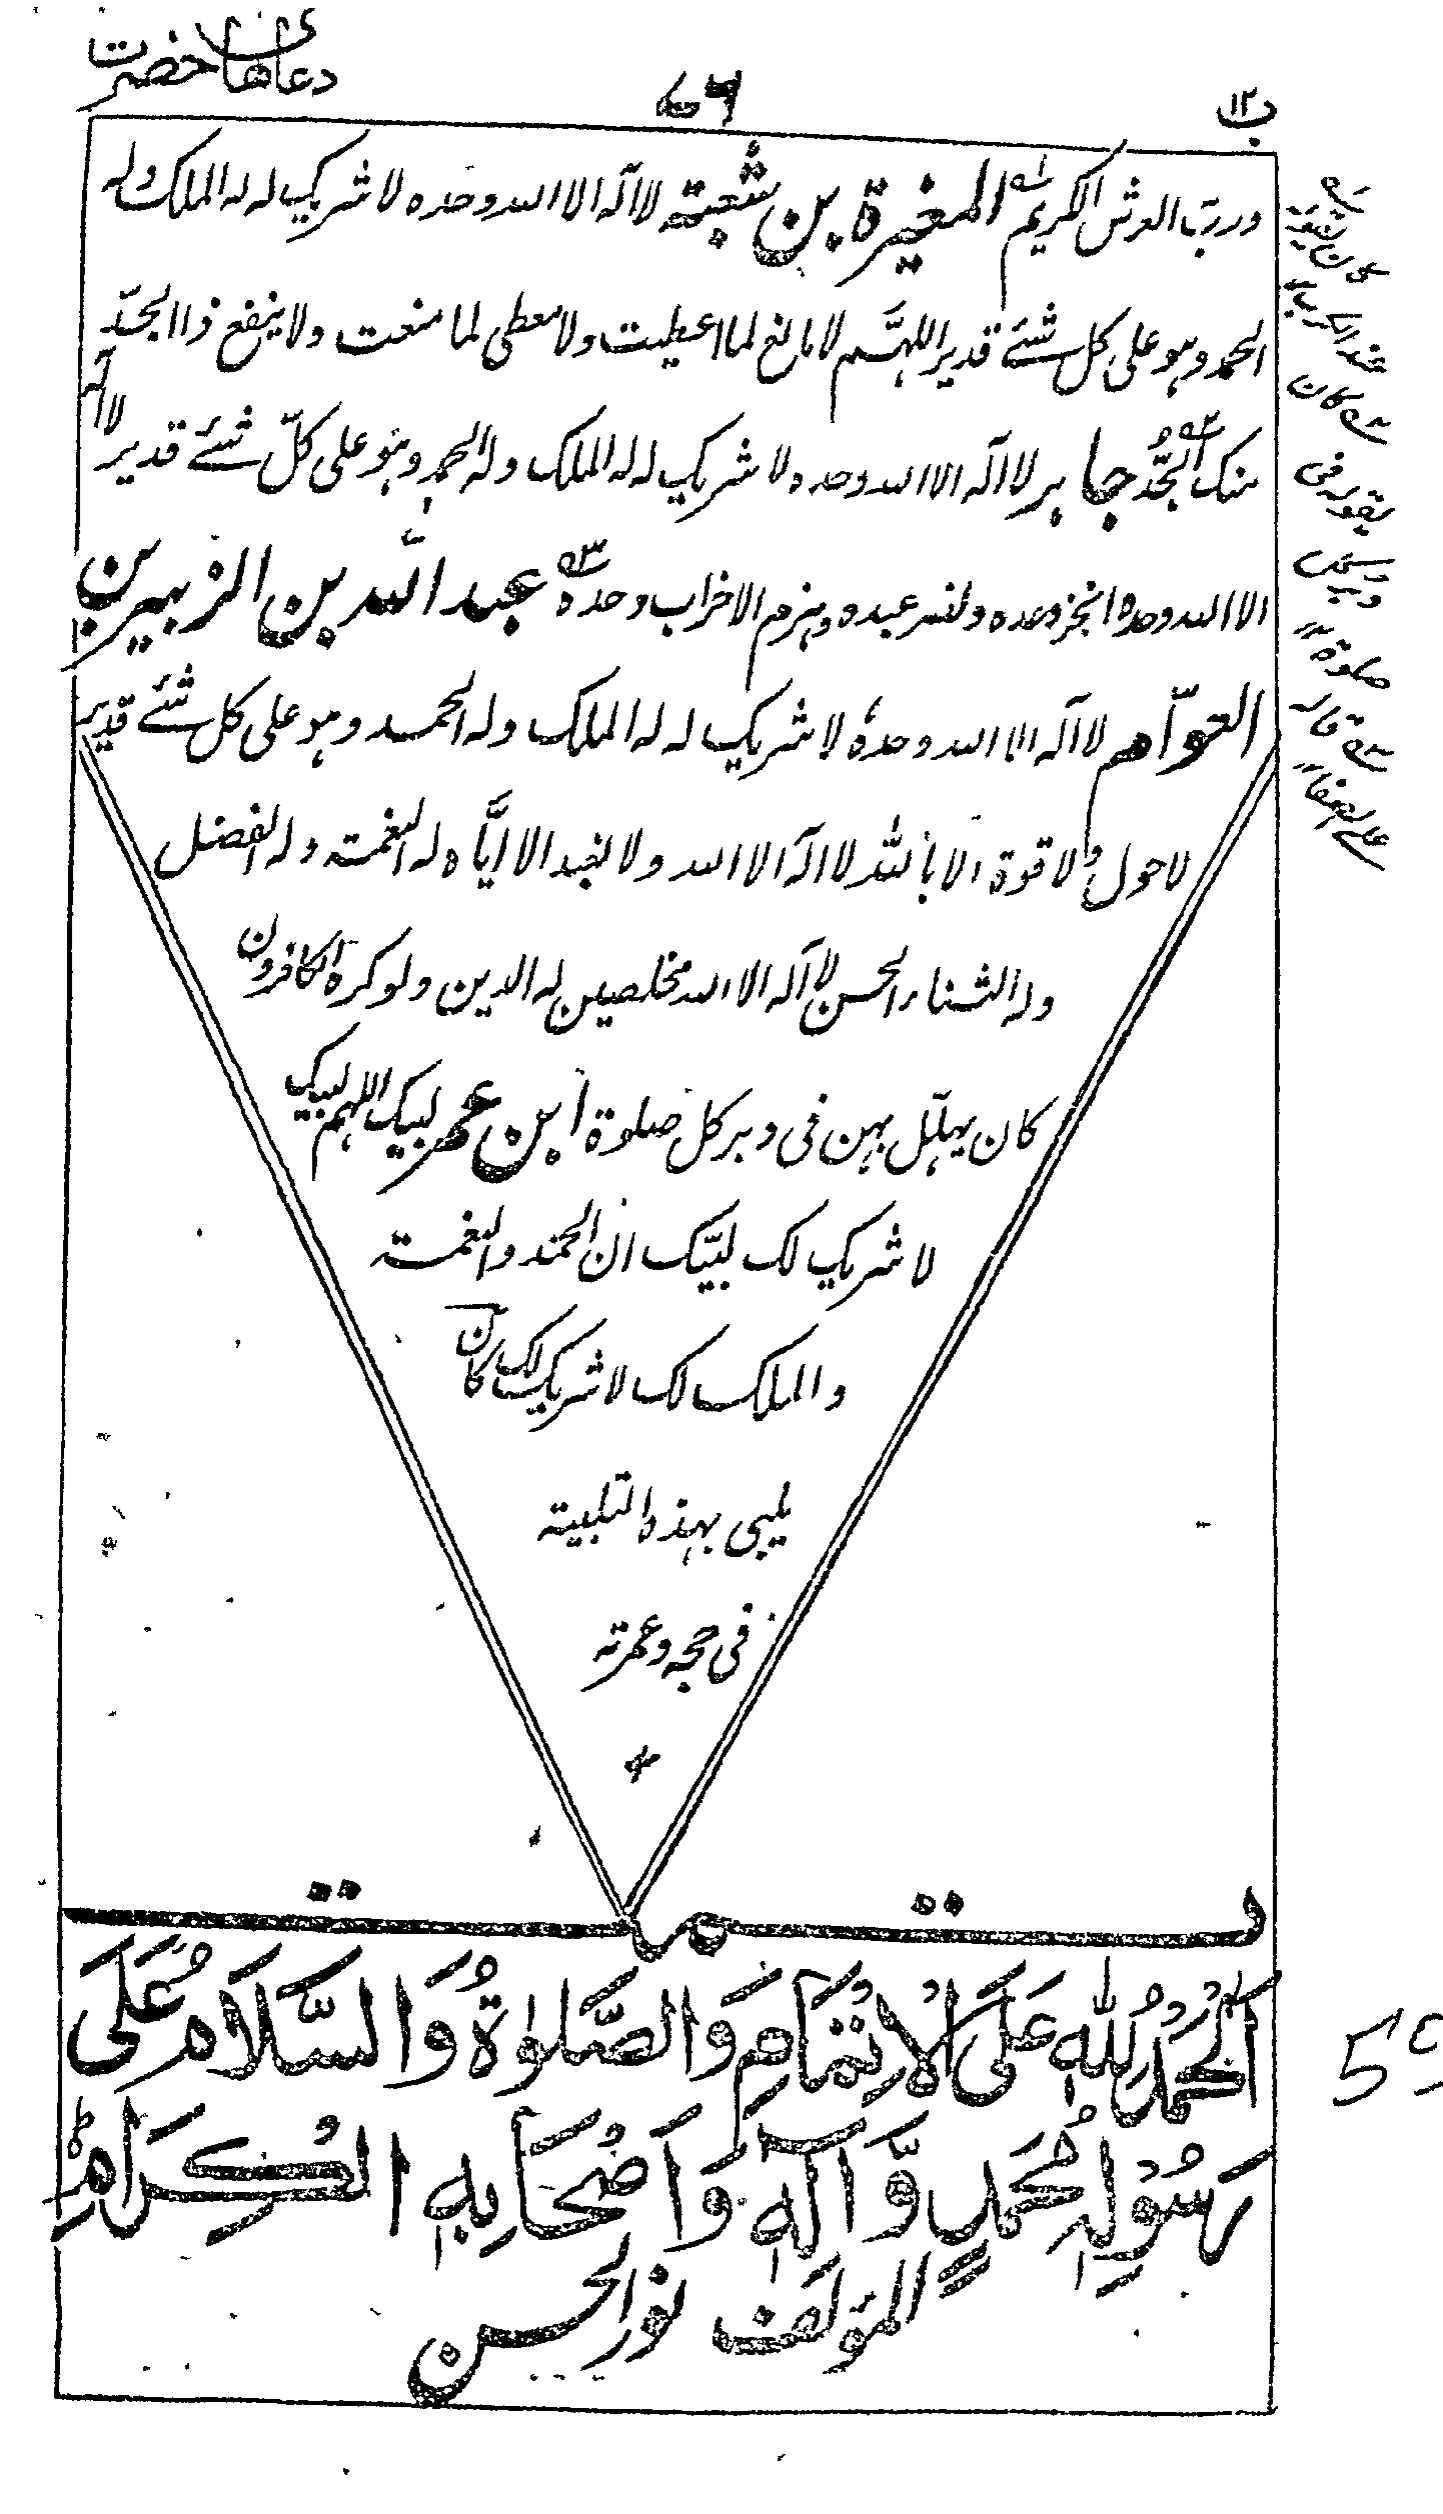 دعاهای حضرت
۷۶
ب ۱۲
ورب العرش الکریم ۱ المغیرة بن شعبته لا اله الا الله وحده لا شریک له له الملک وله
الحمد وهو علی کل شئے قدیر اللهم لا مانع لما اعطیت ولا معطی لما منعت ولا ینفع ذا الجدّ
منک الجدُّ ۲ جابر لا اله الا الله وحده لا شریک له له الملک وله الحمد وهو علی کلّ شئے قدیر لا اله
الا الله وحده انجز وعده ونصر عبده وهزم الاحزاب وحده ۳ عبد الله بن الزبیر بن
العوّام لا اله الا الله وحدهٗ لا شریک له له الملک وله الحمد وهو علی کل شئے قدیر
لا حول ولا قوة الا بالله لا اله الا الله ولا نعبد الا ایّاه له النعمته وله الفضل
وله الثناء الحسن لا اله الا الله مخلصین له الدین ولو کره الکافرون
کان یهلّل بهن فی دبر کل صلوة ابن عمر لبیک اللهم لبیک
لا شریک لک لبیّک ان الحمد والنعمته
والملک لک لا شریک لک کان
یلبی بهذه التلبیته
فی حجه وعمرته
۱ کان یقوله
عند الکرب
۲ کان
یقوله فی
صلوة
۳ قاله
علی الصفا
تمت
اَلْحَمْدُ لِلّٰهِ عَلَی الْاِتْمَامِ وَالصَّلوٰةُ وَالسَّلَامُ عَلَی
رَسُوْلِهٖ مُحَمَّدٍ وَّاٰلِهٖ وَاَصْحَابِهِ الْکِرَامِ
المؤلف نور الحسن